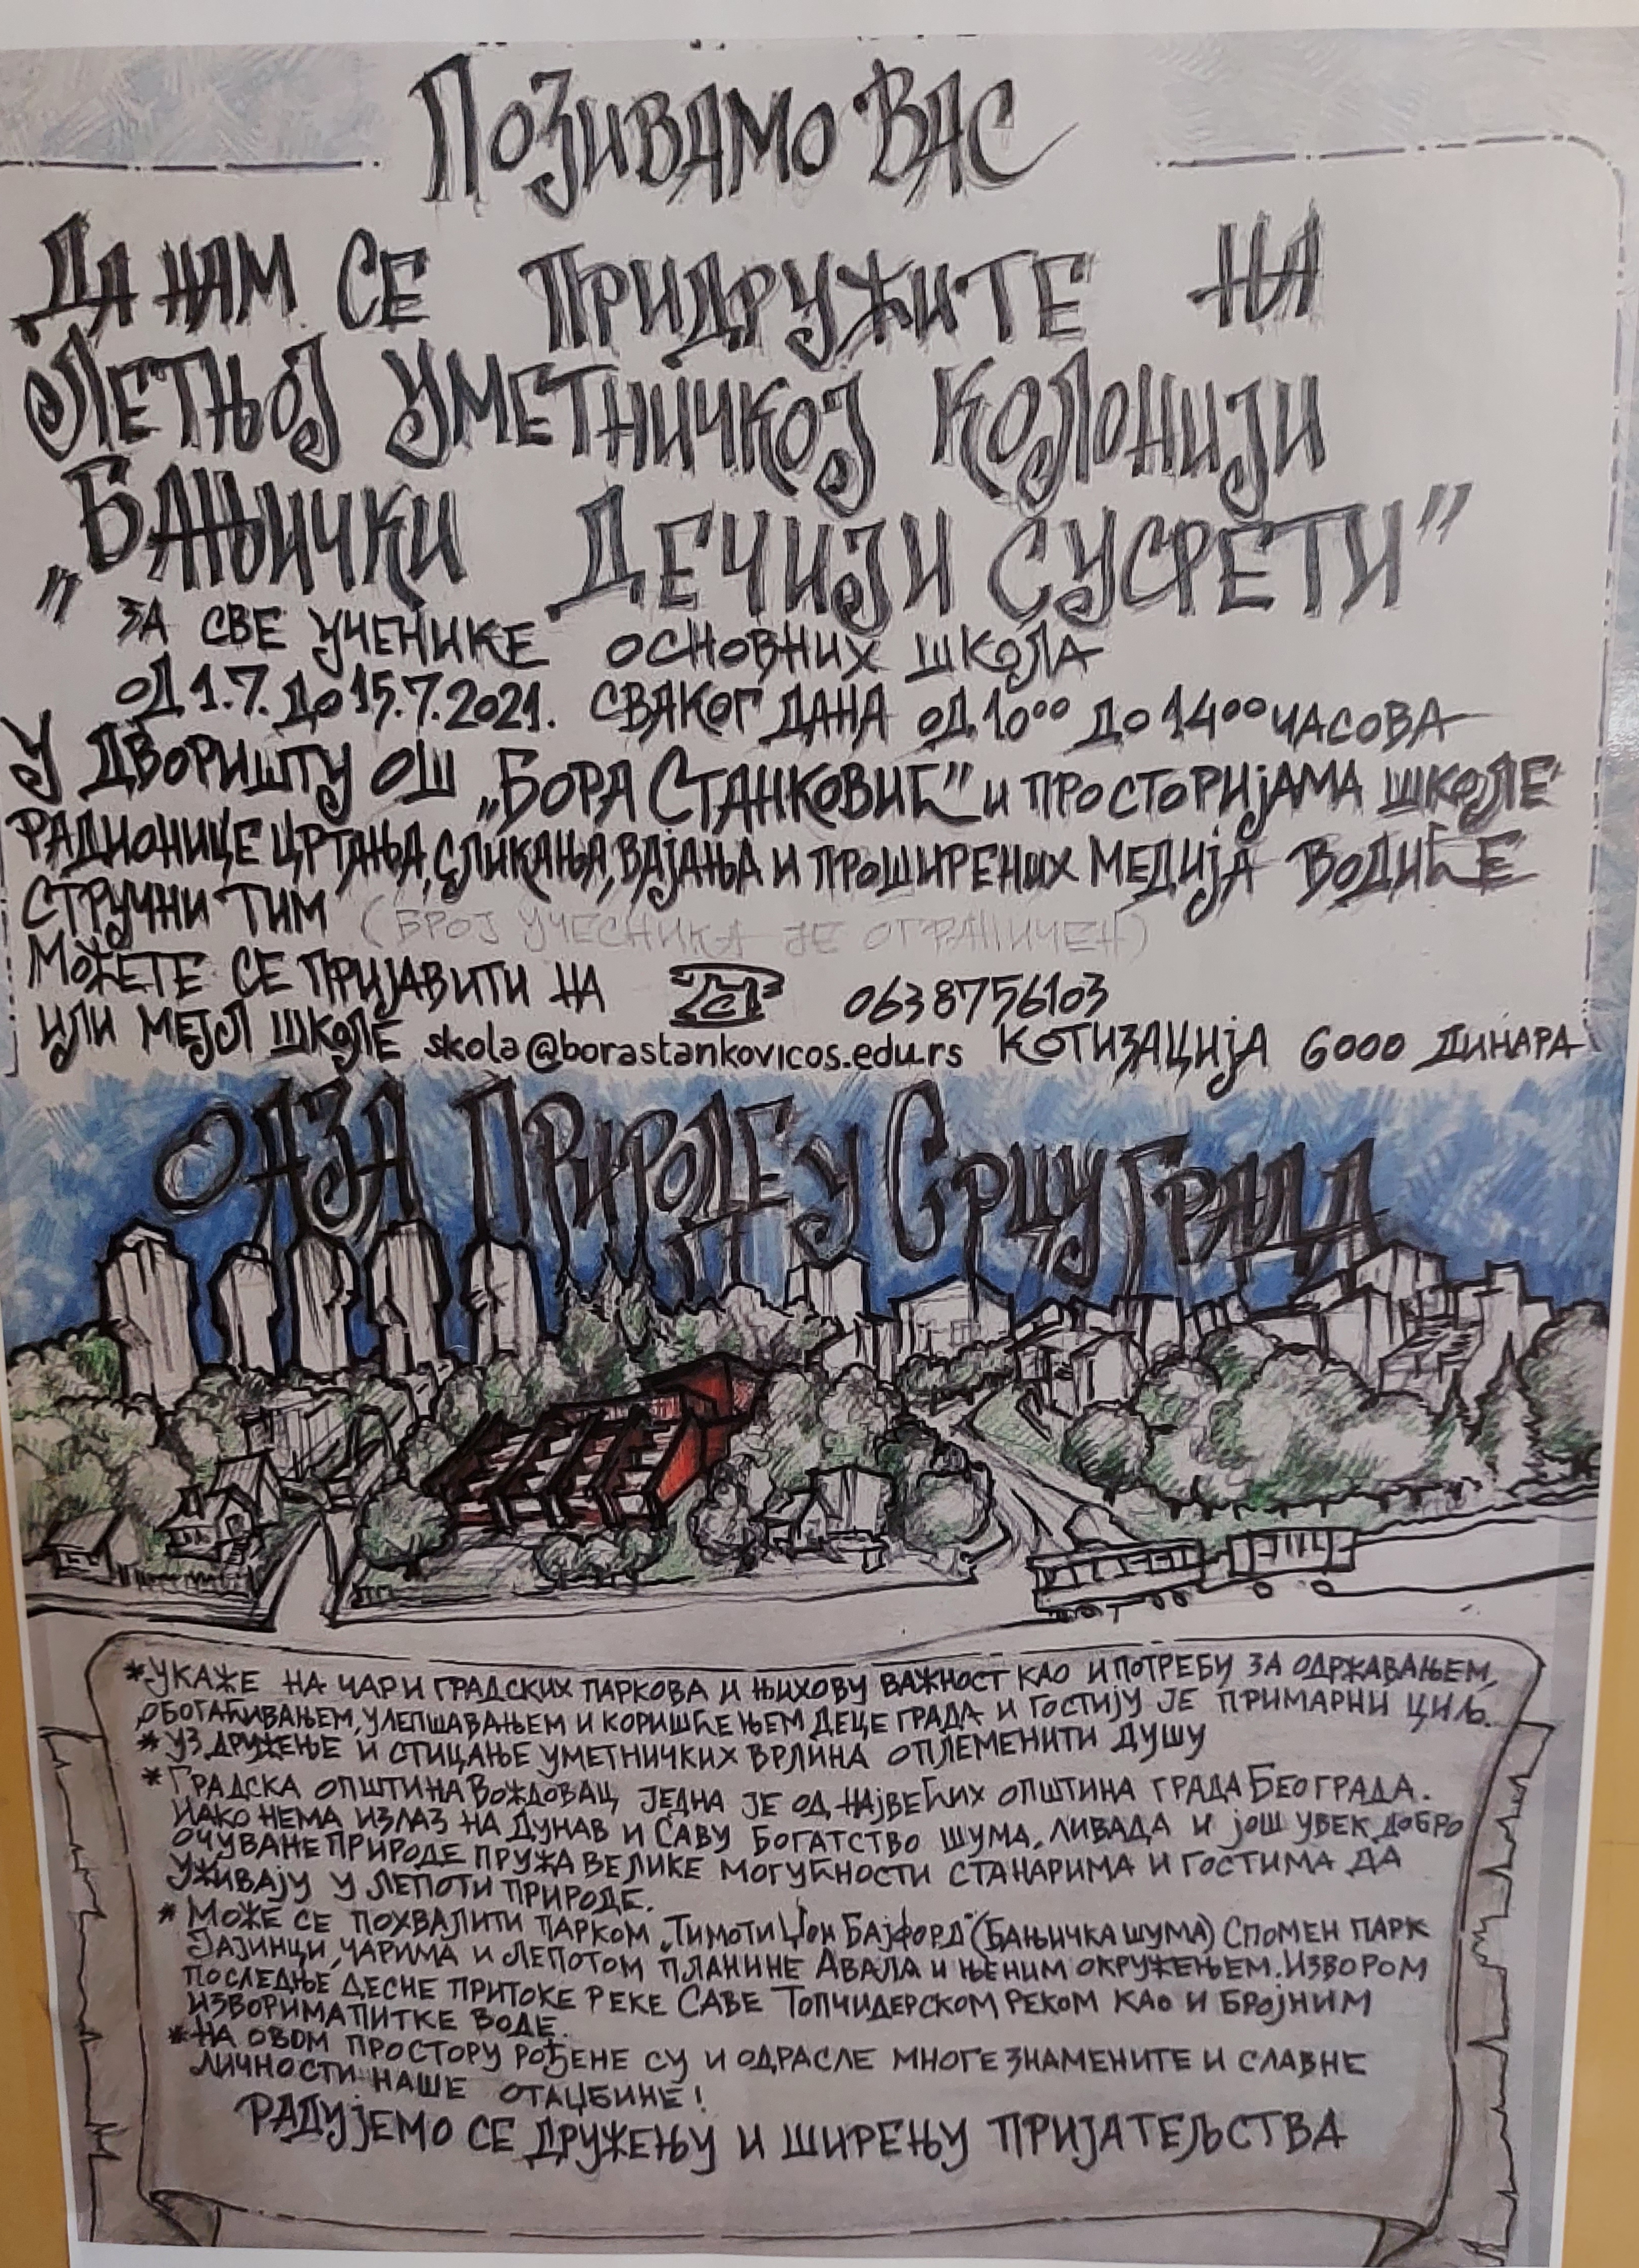 Позивамо Вас
да нам се придружите на
летњој уметничкој колонији
„Бањички дечији сусрети"
за све ученике основних школа
од 1.7. до 15.7.2021. сваког дана од 10⁰⁰ до 14⁰⁰ часова
у дворишту ОШ „Бора Станковић" и просторијама школе
радионице цртања, сликања, вајања и проширених медија водиће
стручни тим (број учесника је ограничен)
Можете се пријавити на 0638756103
или мејл школе skola@borastankovicos.edu.rs котизација 6000 динара
Оаза Природе у Срцу Града
*Укаже на чари градских паркова и њихову важност као и потребу за одржавањем,
обогаћивањем, улепшавањем и коришћењем деце града и гостију је примарни циљ.
*Уз дружење и стицање уметничких врлина оплеменити душу
*Градска општина Вождовац једна је од највећих општина града Београда.
Иако нема излаз на Дунав и Саву богатство шума, ливада и још увек добро
очуване природе пружа велике могућности станарима и гостима да
уживају у лепоти природе.
*Може се похвалити парком „Тимоти Џон Бајфорд" (Бањичка шума) Спомен парк
Јајинци, чарима и лепотом планине Авала и њеним окружењем. Извором
последње десне притоке реке Саве Топчидерском реком као и бројним
изворима питке воде.
*На овом простору рођене су и одрасле многе знамените и славне
личности наше отаџбине!
Радујемо се дружењу и ширењу пријатељства